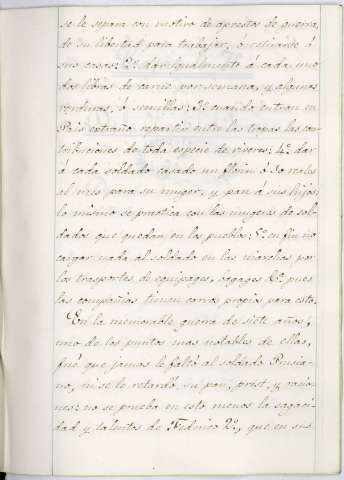 se le separa con motivo de aprestos de guerra,
de su libertad para trabajar, ó retirarse á
sus casas: 2º dar igualmente á cada uno
dos libras de carne por semana, y algunas
verduras, ó semillas: 3º cuando entran en
Pais extraño repartir entre las tropas las con-
tribuciones de toda especie de viveres: 4º dar
á cada soldado casado un florin ó 30 reales
al mes para su muger, y pan á sus hijos;
lo mismo se practica con las mugeres de sol-
dados que quedan en los pueblos: 5º en fin no
cargar nada al soldado en las marchas por
los trasportes de equipages, bagages &ª pues
las compañias tienen carros propios para esto.
En la memorable guerra de siete años,
uno de los puntos mas notables de ellas,
fué que jamas le faltó al soldado Prusia-
no, ni se le retardó su pan, prest, y racio-
nes: no se prueba en esto menos la sagaci-
dad y talentos de Federico 2º, que en sus